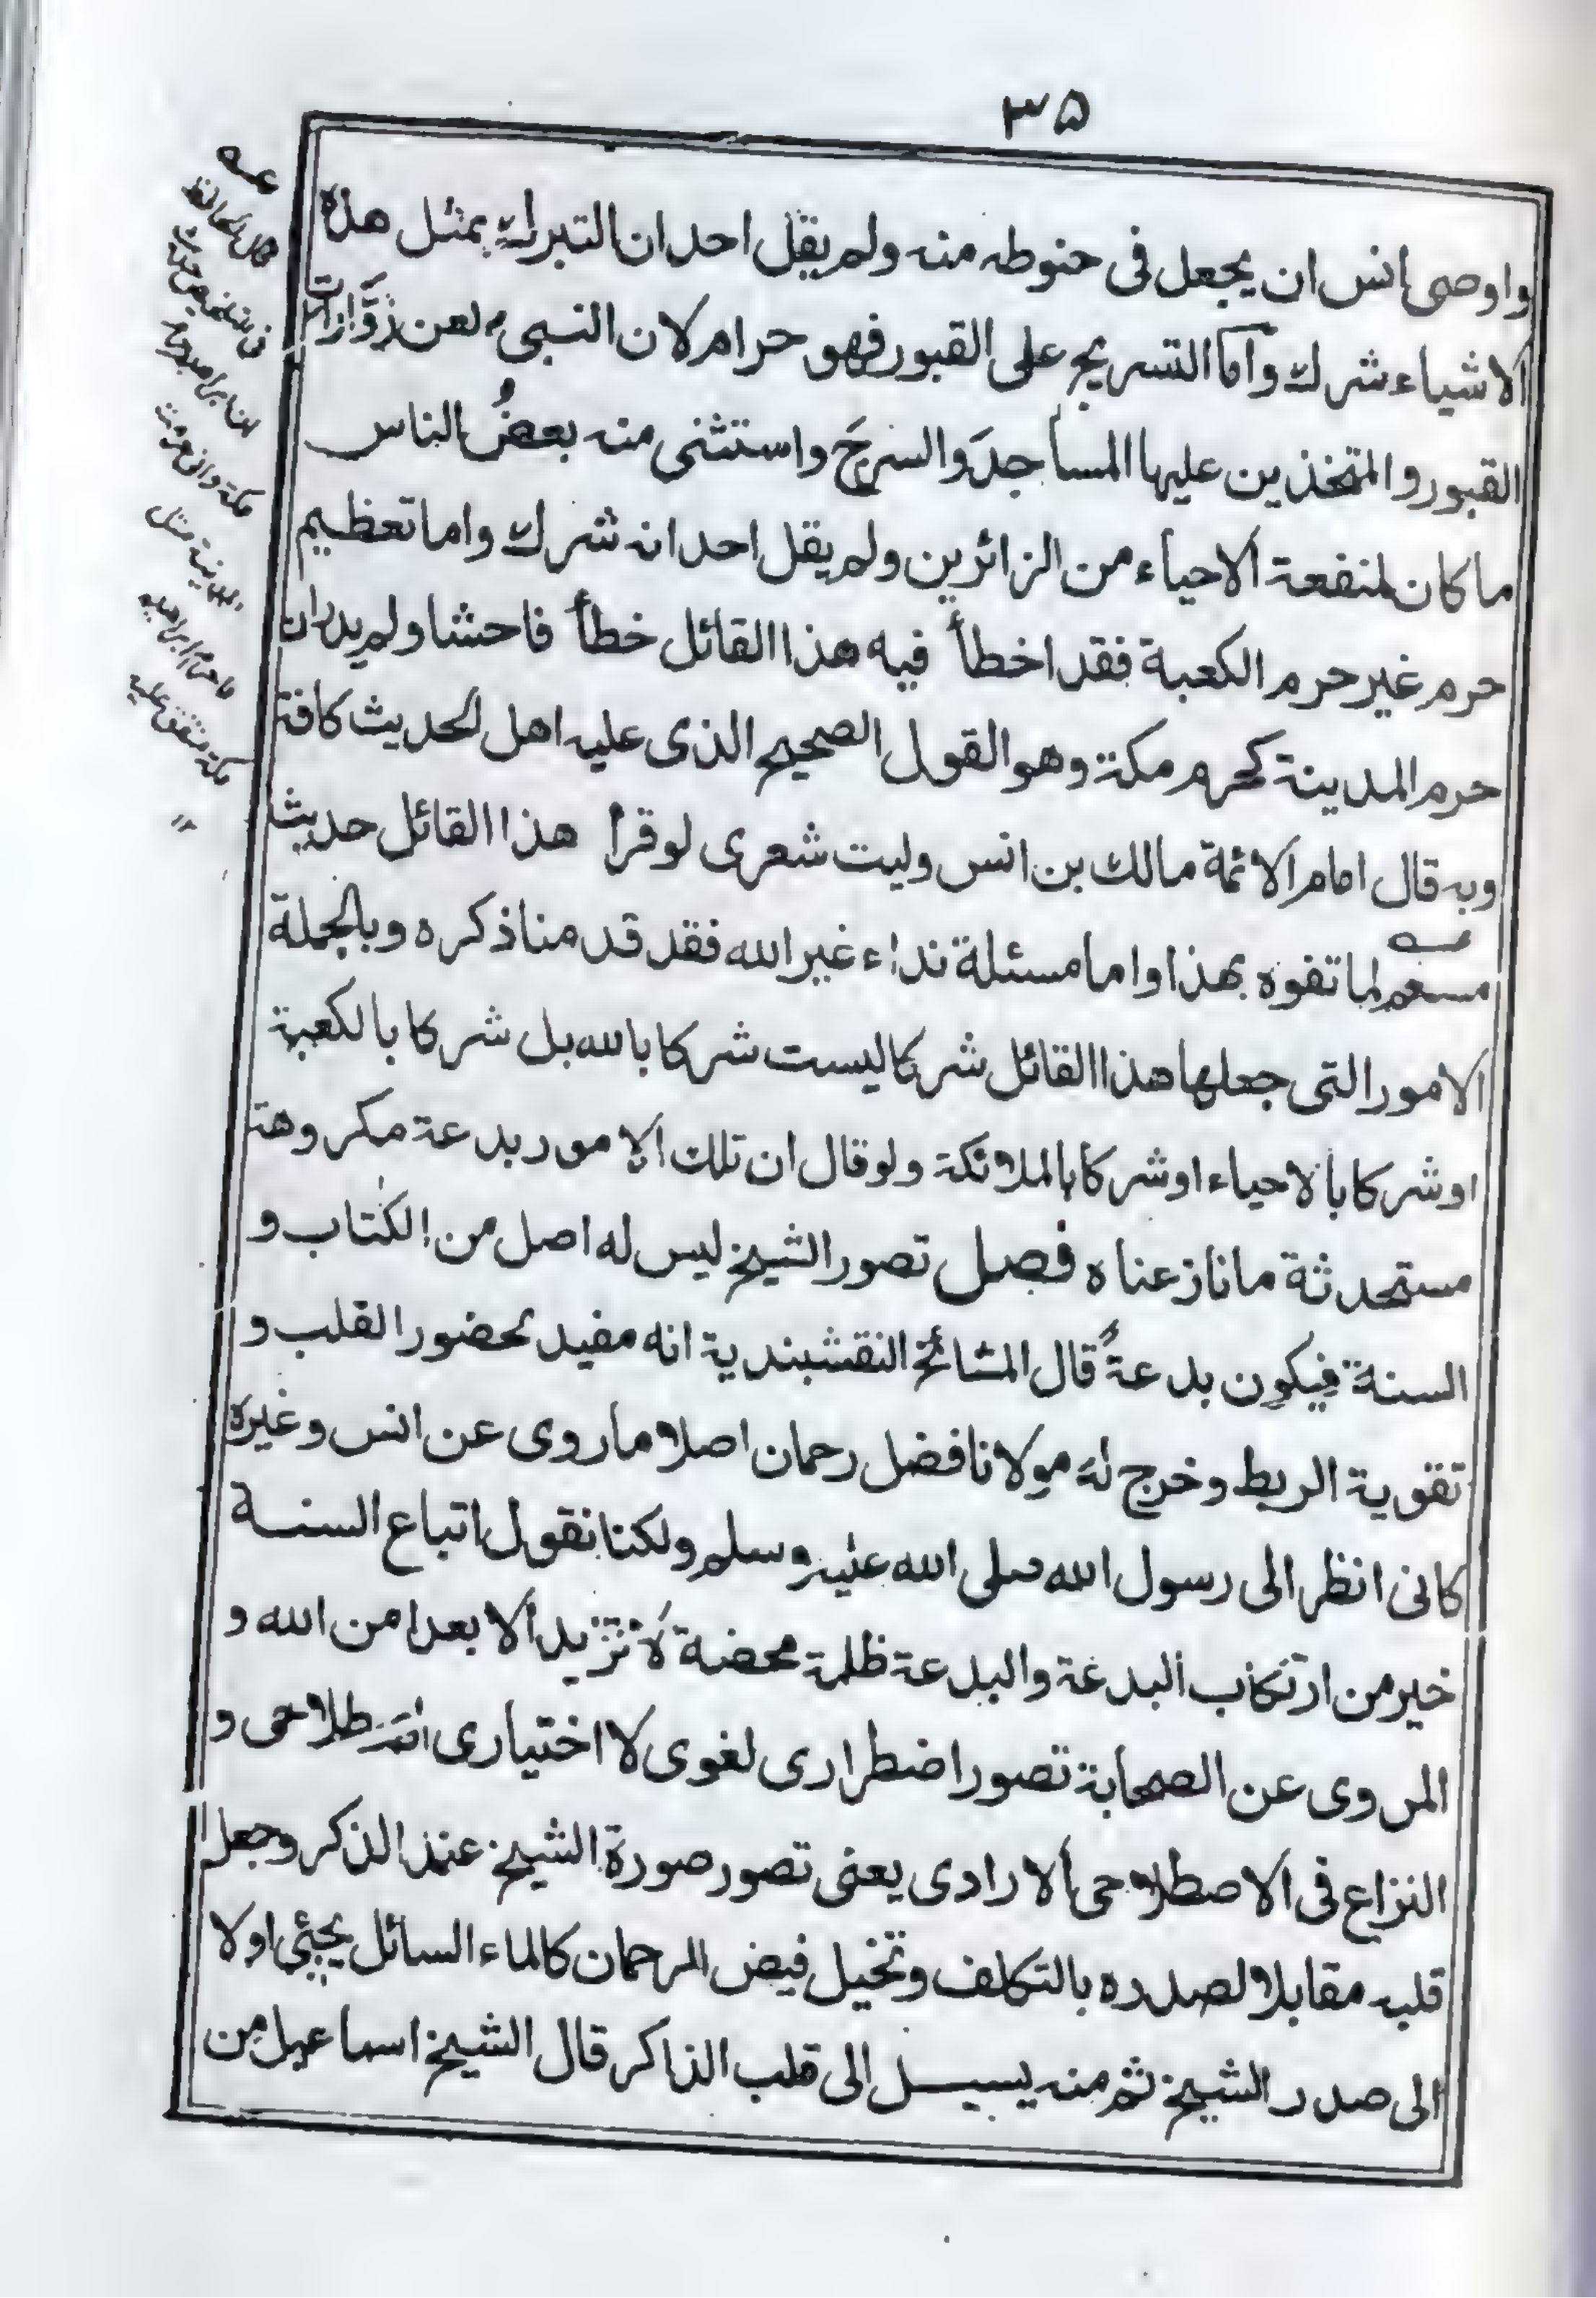 ۳۵
واوصی انس ان یجعل فی حنوطه منه ولم یقل احد ان التبرک بمثل هذه
الاشیاء شرک واما التسریج علی القبور فهو حرام لان النبیؐ لعن زَوَّارات
القبور والمتخذین علیها المساجدَ والسرجَ واستثنی منه بعضُ الناس
ما کان لمنفعة الاحیاء من الزائرین ولم یقل احد انه شرک واما تعظیم
حرم غیر حرم الکعبة فقد اخطأ فیه هذا القائل خطأ فاحشا ولم یدر ان
حرم المدینة کحرم مکة وهو القول الصحیح الذی علیه اهل الحدیث کافة
وبه قال امام الائمة مالک بن انس ولیت شعری لو قرأ هذا القائل حدیث
لما تفوه بهذا واما مسئلة نداء غیر الله فقد قدمنا ذکره وبالجملة
الامور التی جعلها هذا القائل شرکا لیست شرکا بالله بل شرکا بالکعبة
او شرکا بالاحیاء او شرکا بالملائکة ولو قال ان تلک الامور بدعة مکروهة
مستحدثة ما نازعناه فصل تصور الشیخ لیس له اصل من الکتاب و
السنة فیکون بدعةً قال المشائخ النقشبندیة انه مفید لحضور القلب و
تقویة الربط وخرج له مولانا فضل رحمان اصلا ما روی عن انس وغیره
کانی انظر الی رسول الله صلی الله علیه وسلم ولکنا نقول اتباع السنة
خیر من ارتکاب البدعة والبدعة ظلمة محضة لا تزید الا بعدا من الله و
المروی عن الصحابة تصور اضطراری لغوی لا اختیاری اصطلاحی و
النزاع فی الاصطلاحی الارادی یعنی تصور صورة الشیخ عند الذکر وجعل
قلبه مقابلا لصدره بالتکلف وتخیل فیض الرحمان کالماء السائل یجیئ اولا
الی صدر الشیخ ثم منه یسیل الی قلب الذاکر قال الشیخ اسماعیل من
عـه
قال الحافظ
فی تلخیص حدیث
ان ابراهیم حرم
مکة وانی حرمت
المدینة مثل
ما حرم ابراهیم
مکة متفق علیه
۱۲